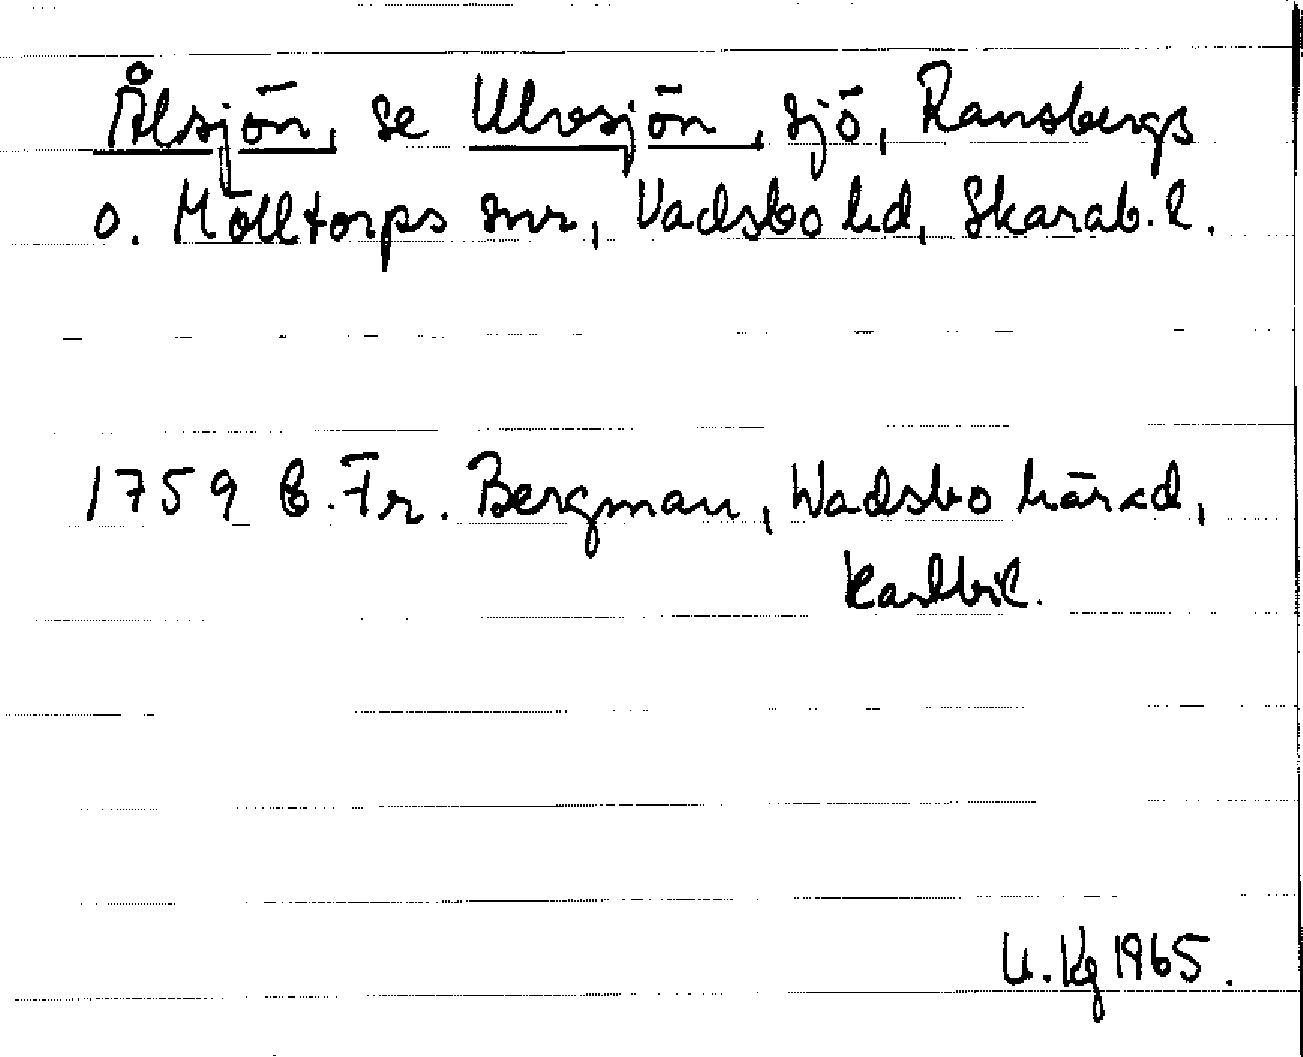 Ålsjön, se Ulvsjön, sjö, Ransbergs
o. Mölltorps snr, Vadsbo hd, Skarab. l.
1759 B. Fr. Bergman, Wadsbo härad,
Kartbil.
U. Kg 1965.